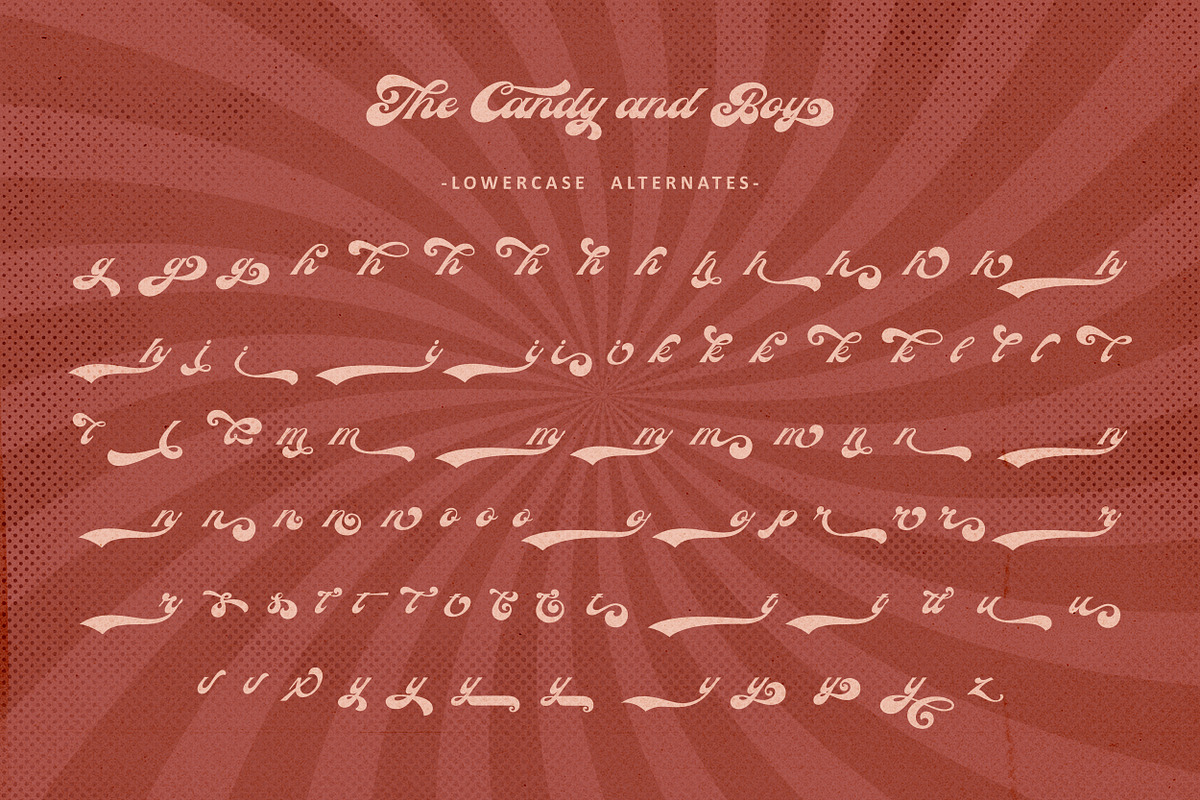 The Candy and Boys
-LOWERCASE ALTERNATES-
g g g h h h h h h h h h h h h
h i i i i i i k k k k k l l l l
l l l m m m m m m n n n
n n n n n o o o o o p r r r r
r s s t t t t t t t t t u u u
v v x y y y y y y y y z